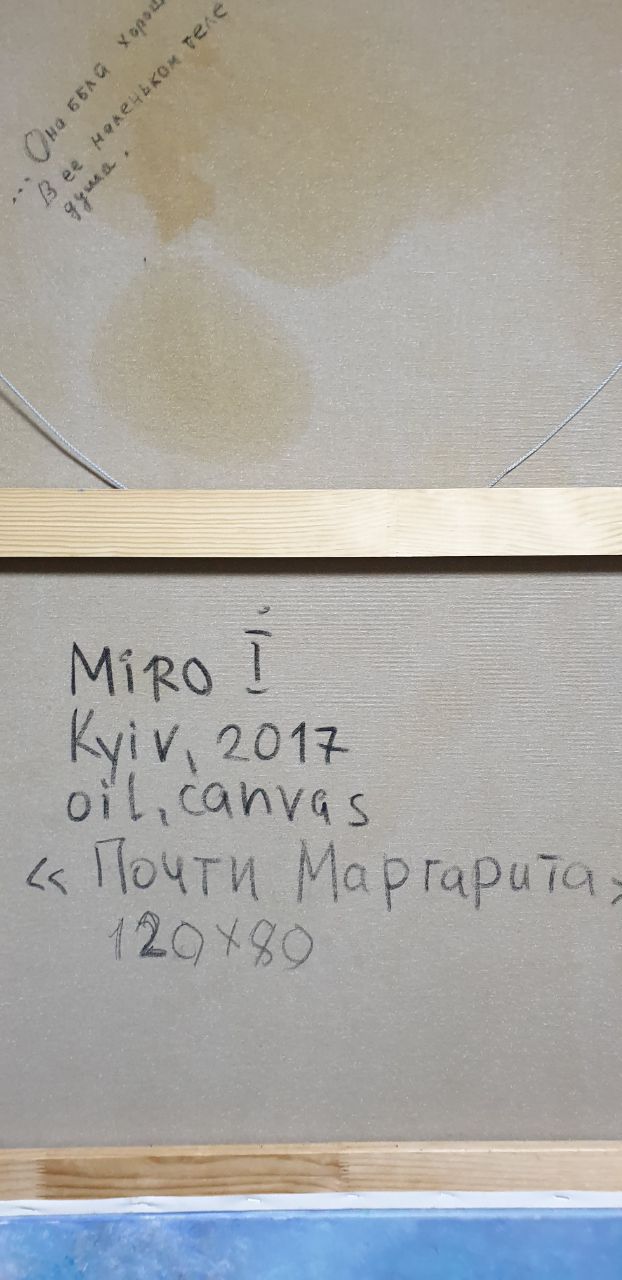 ... Она была хорош
В ее маленьком теле
душа.
MiRO I
Kyiv, 2017
oil, canvas
« Почти Маргарита»
120x80